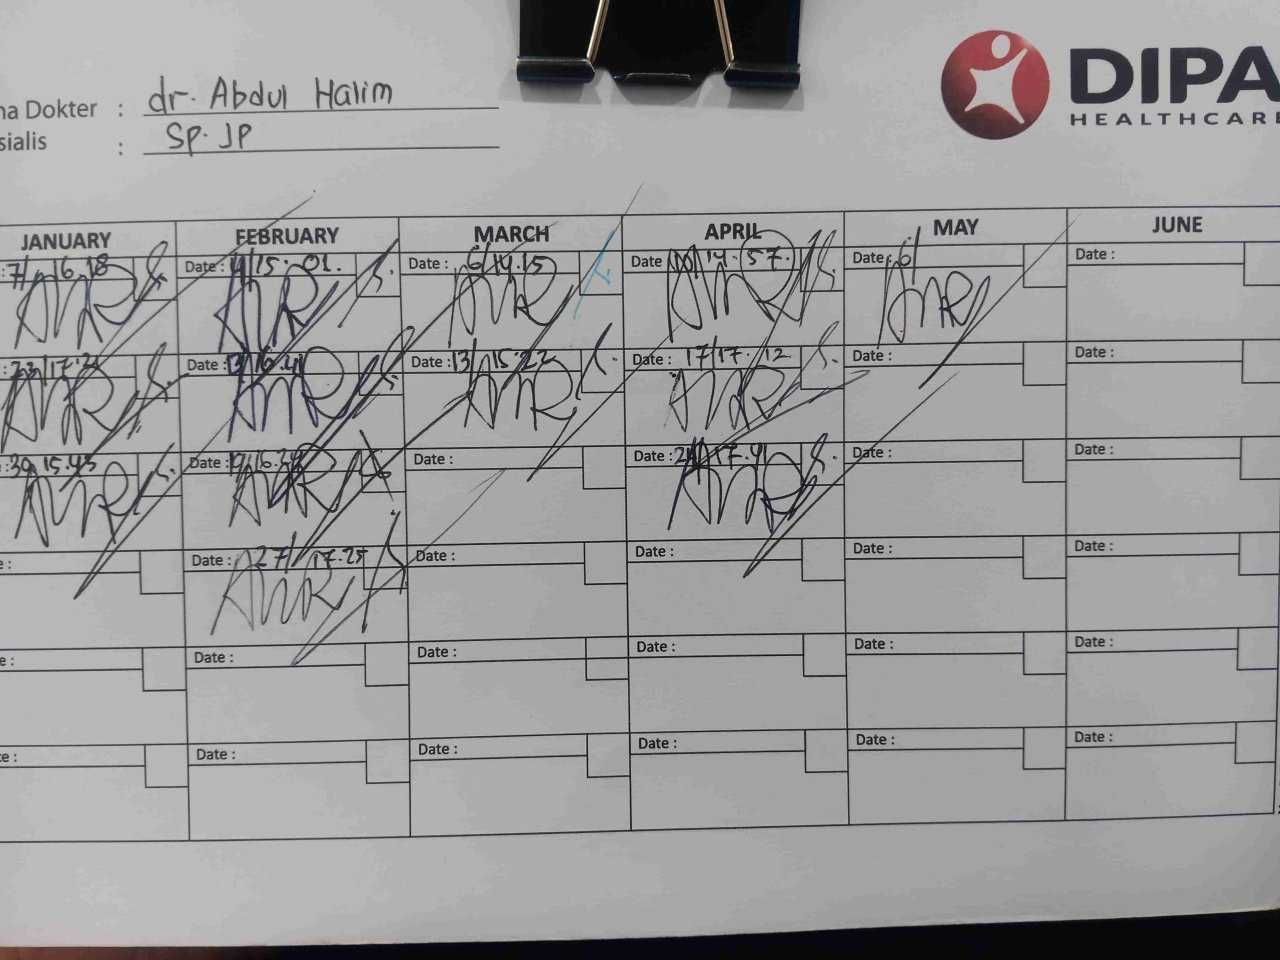 DIPA
HEALTHCARE
na Dokter : dr. Abdul Halim
sialis : Sp. JP
JANUARY FEBRUARY MARCH APRIL MAY JUNE
: 7/ 16.18 Date : 4/15.01. Date : 6/14.15 Date 10/14.57. Date : 6/ Date :
23/17.21 Date : 13/16.41 Date : 13/15.22 Date : 17/17.12 Date : Date :
: 30 15.43 Date : 19/16.24 Date : Date : 24/17.41 Date : Date :
e : Date : 27/ 17.25 Date : Date : Date : Date :
e : Date : Date : Date : Date : Date :
te : Date : Date : Date : Date : Date :